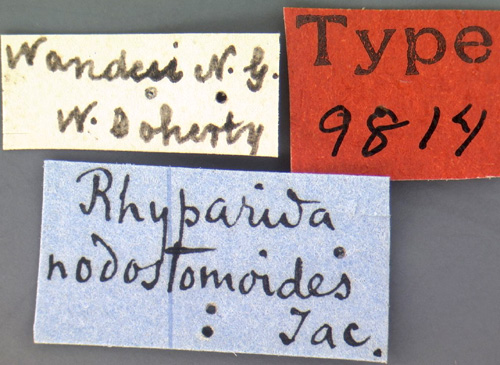 Wandesi N. G.
W. Doherty
Type
9814
Rhyparida
nodostomoides
Jac.